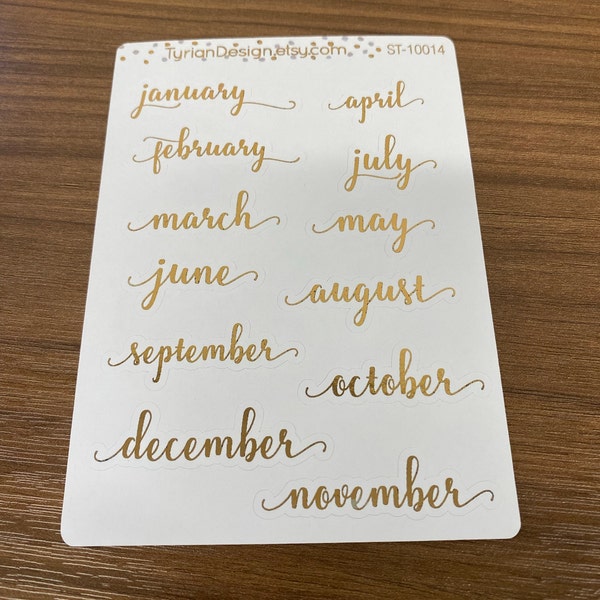 TyrianDesign.etsy.com ST-10014
january
april
february
july
march
may
june
august
september
october
december
november